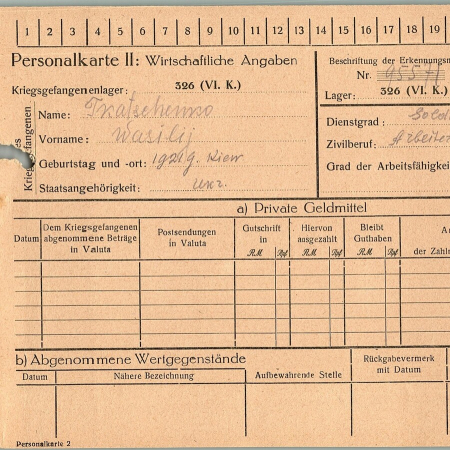 1 2 3 4 5 6 7 8 9 10 11 12 13 14 15 16 17 18 19
Personalkarte II: Wirtschaftliche Angaben
Beschriftung der Erkennungsm
Nr.
Kriegsgefangenenlager: 326 (VI. K.)
Lager: 326 (VI. K.)
des Kriegsgefangenen
Name: Tkatschenko
Vorname: Wasilij
Geburtstag und -ort: Kiew
Staatsangehörigkeit: ukr.
Dienstgrad: Sold
Zivilberuf: Arbeiter
Grad der Arbeitsfähigkeit
a) Private Geldmittel
Datum
Dem Kriegsgefangenen abgenommene Beträge in Valuta
Postsendungen in Valuta
Gutschrift in
R.M. Rpf
Hiervon ausgezahlt
R.M. Rpf
Bleibt Guthaben
R.M. Rpf
der Zahl
b) Abgenommene Wertgegenstände
Datum
Nähere Bezeichnung
Aufbewahrende Stelle
Rückgabevermerk mit Datum
Personalkarte 2